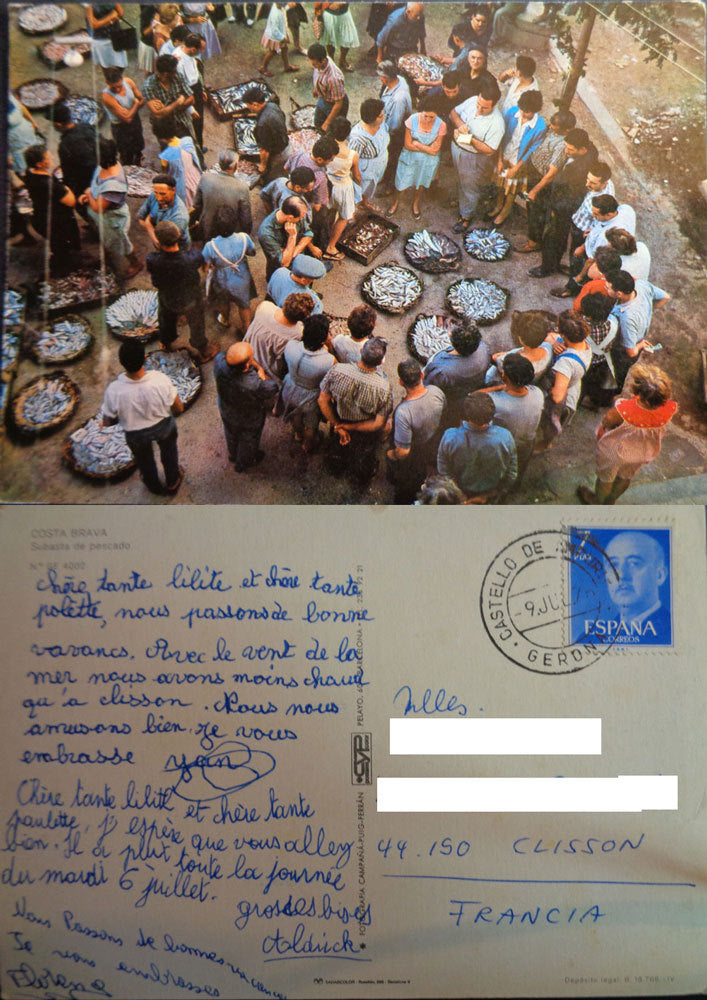 COSTA BRAVA
Subasta de pescado
chère tante lilite et chère tante
polette, nous passons de bonne
vavancs. Avec le vent de la
mer nous avons moins chaud
qu'a clisson. Nous nous
amusons bien. Je vous
enbrasse yan
Chère tante lilith et chère tante
paulette, J'espère que vous alley
bien. Il a plut toute la journée
du mardi 6 juillet.
grosses bises
Aldrick
Nous Passons de bonnes
Je vous embrasses
FOTOGRAFIA CAMPAÑA-PUIG-FERRAN
CYP
PELAYO, BARCELONA
CASTELLO DE
9 JUL
GERONA
7 PTAS
ESPAÑA
CORREOS
Mlles.
44.190 CLISSON
FRANCIA
Depósito legal, B. 18.766-LIV